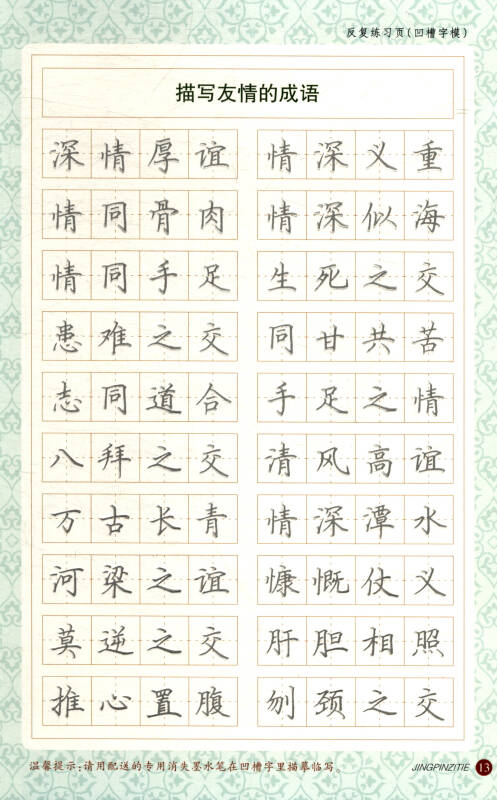 反复练习页(凹槽字模)
描写友情的成语
深情厚谊 情深义重
情同骨肉 情深似海
情同手足 生死之交
患难之交 同甘共苦
志同道合 手足之情
八拜之交 清风高谊
万古长青 情深潭水
河梁之谊 慷慨仗义
莫逆之交 肝胆相照
推心置腹 刎颈之交
温馨提示:请用配送的专用消失墨水笔在凹槽字里描摹临写。 JINGPINZITIE 13